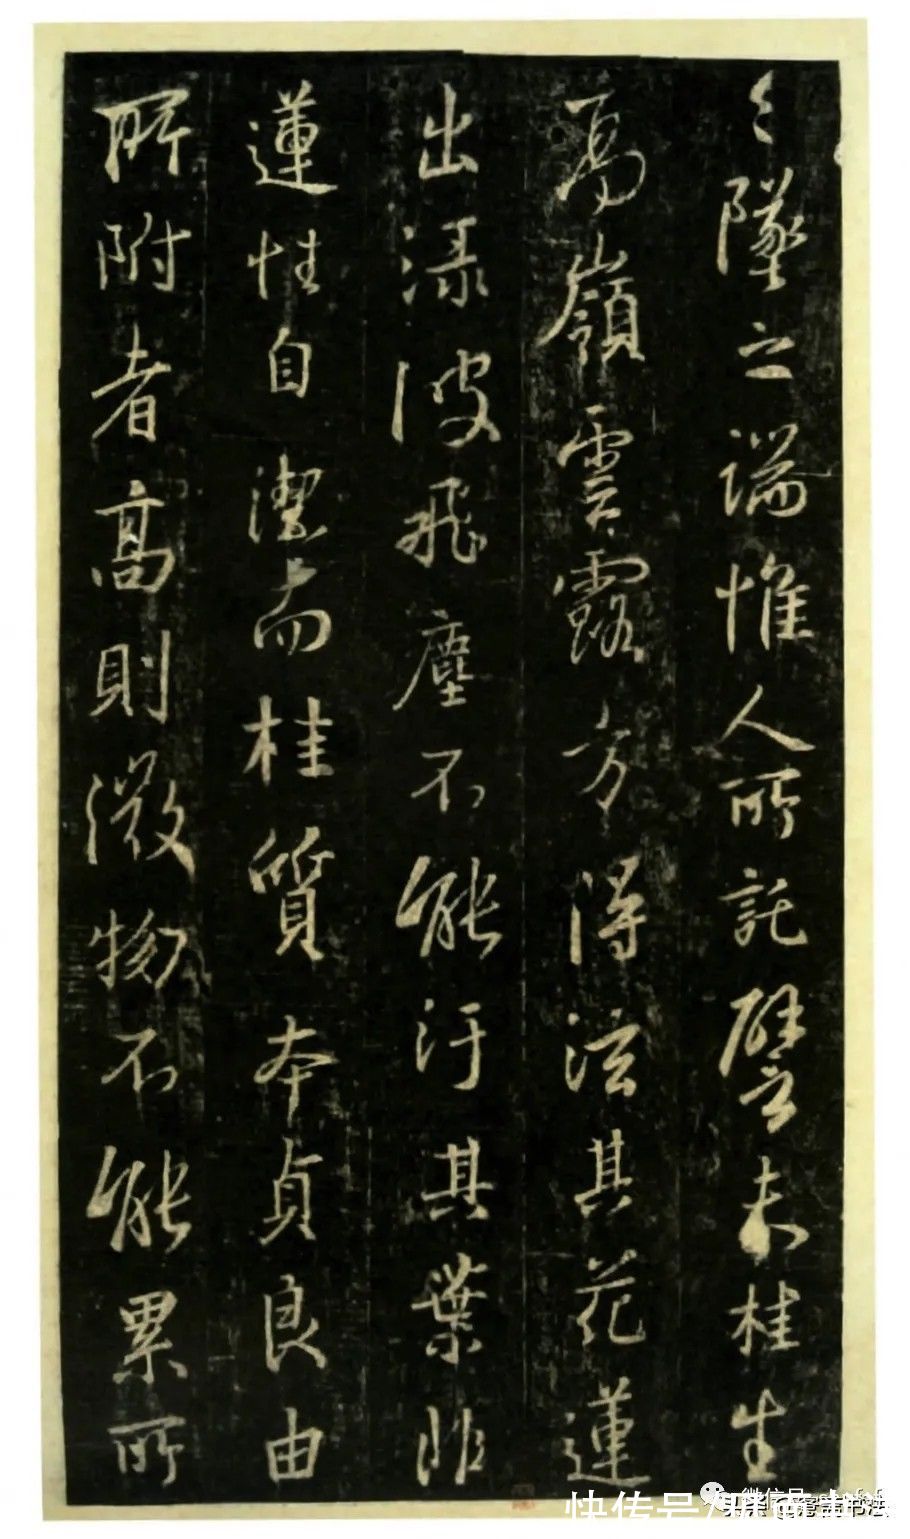 々墜之端惟人所託譬夫桂生
高嶺雲露方得泫其花蓮
出淥波飛塵不能汙其葉非
蓮性自潔而桂質本貞良由
所附者高則微物不能累所
快传号